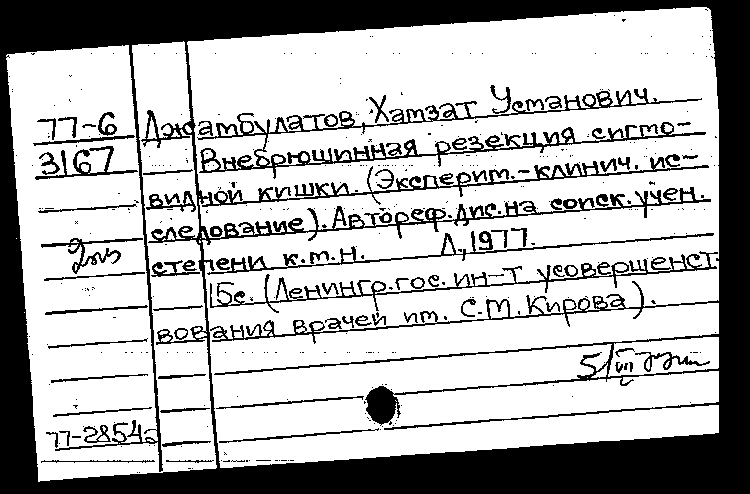 77-6 Джамбулатов, Хамзат Установич.
3167 Внебрюшинная резекция сигмо-
видной кишки. (Эксперим.-клинич. ис-
следование). Автореф. дис. на соиск. учен.
степени к.м.н. Л., 1977.
15с. (Ленингр. гос. ин-т усовершенст-
вования врачей им. С.М. Кирова).
77-28542